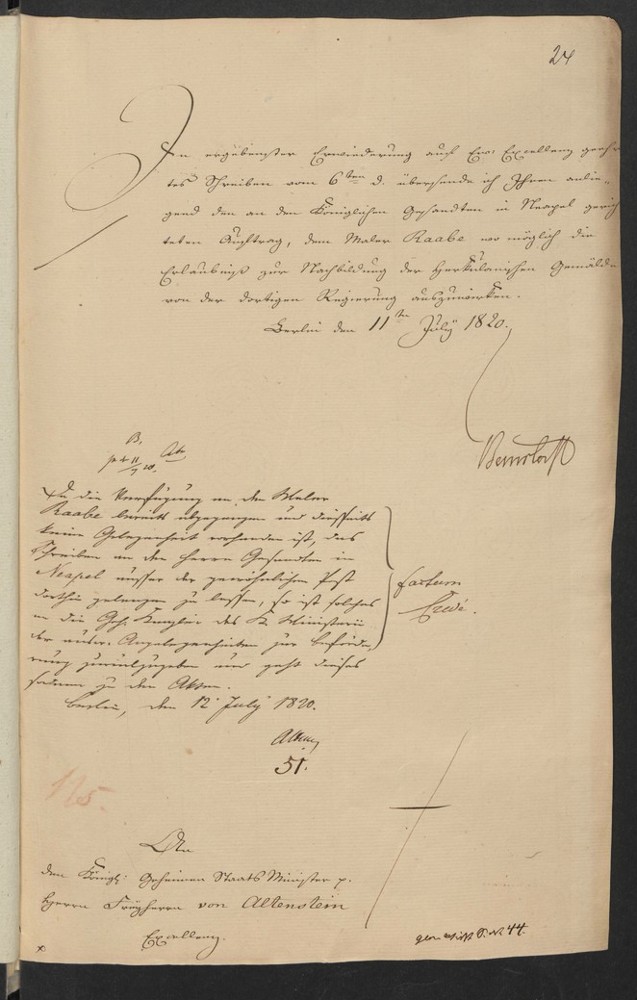 24
In ergebenster Erwiederung auf Ew: Excellenz geehr
tes Schreiben vom 6ten d. übersende ich Ihnen anlie-
gend den an den Königlichen Gesandten in Neapel gerich
teten Auftrag, dem Maler Raabe wo möglich die
Erlaubniß zur Nachbildung der Herkulanischen Gemälde
von der dortigen Regierung auszuwirken.
Berlin den 11ten July 1820.
Bernstorff
B,
Da die Verfügung an den Maler
Raabe bereits abgegangen und diesseits
keine Gelegenheit vorhanden ist, das
Schreiben an den Herrn Gesandten in
Neapel ausser der gewöhnlichen Post
dorthin gelangen zu lassen, so ist solches
an die Geh. Kanzlei des K. Ministerii
der ausw. Angelegenheiten zur Beförde-
rung zurückzugeben und geht dieses
sodann zu den Akten.
Berlin, den 12 July 1820.
factum
51.
An
den Königl: Geheimen Staats Minister p.
Herrn Freyherrn von Altenstein
Excellenz.
44.